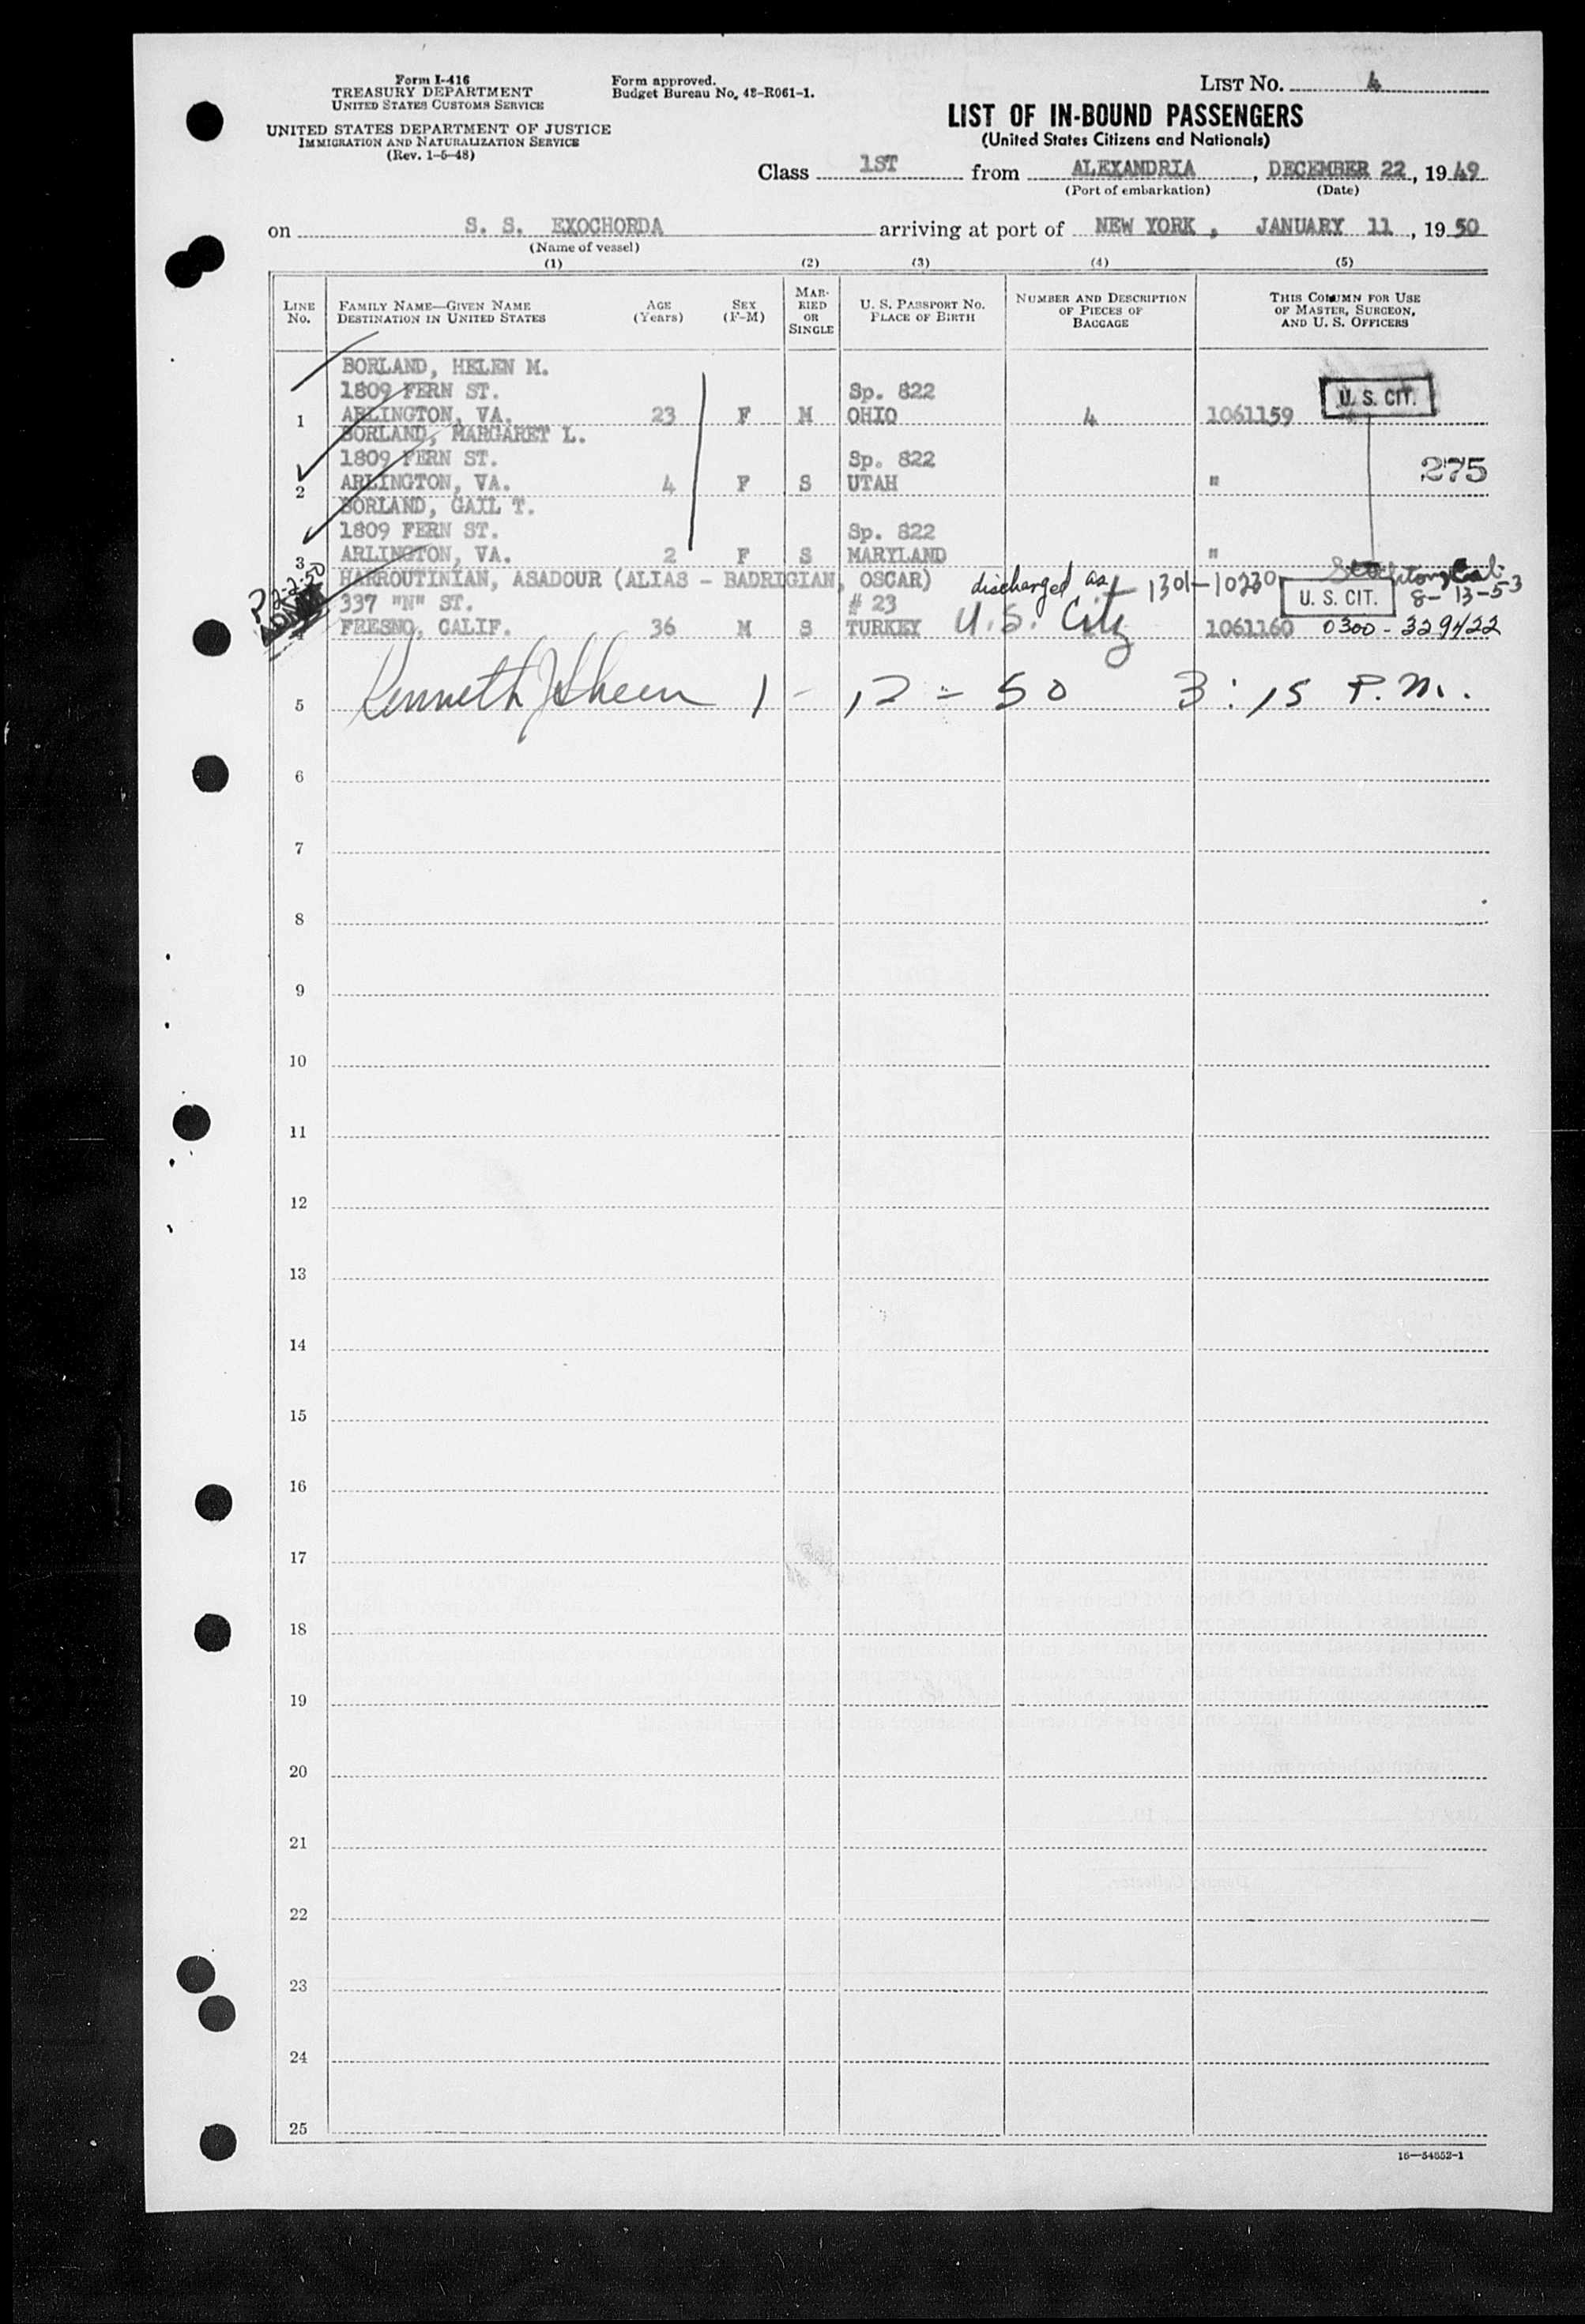 Form I-416
TREASURY DEPARTMENT
UNITED STATES CUSTOMS SERVICE
UNITED STATES DEPARTMENT OF JUSTICE
IMMIGRATION AND NATURALIZATION SERVICE
(Rev. 1-5-48)
Form approved.
Budget Bureau No. 48-R061-1.
LIST NO. 4
LIST OF IN-BOUND PASSENGERS
(United States Citizens and Nationals)
Class 1ST from ALEXANDRIA, DECEMBER 22, 1949
(Port of embarkation) (Date)
on S. S. EXOCHORDA arriving at port of NEW YORK, JANUARY 11, 1950
(Name of vessel)
(1) (2) (3) (4) (5)
LINE No.
FAMILY NAME—GIVEN NAME
DESTINATION IN UNITED STATES
AGE (Years)
SEX (F-M)
MARRIED OR SINGLE
U. S. PASSPORT NO.
PLACE OF BIRTH
NUMBER AND DESCRIPTION OF PIECES OF BAGGAGE
THIS COLUMN FOR USE OF MASTER, SURGEON, AND U. S. OFFICERS
BORLAND, HELEN M.
1809 FERN ST. Sp. 822 U. S. CIT.
1 ARLINGTON, VA. 23 F M OHIO 4 1061159
BORLAND, MARGARET L.
1809 FERN ST. Sp. 822 275
2 ARLINGTON, VA. 4 F S UTAH "
BORLAND, GAIL T.
1809 FERN ST. Sp. 822
3 ARLINGTON, VA. 2 F S MARYLAND "
HARROUTINIAN, ASADOUR (ALIAS - BADRIGIAN, OSCAR) discharged as 1301-10230 Stockton, Cal.
P 2-2-50
337 "N" ST. # 23 U. S. CIT. 8-13-53
4 FRESNO, CALIF. 36 M S TURKEY U.S. Citz 1061160 0300-329422
5 Kenneth J Sheen 1-12-50 3:15 P.M.
6
7
8
9
10
11
12
13
14
15
16
17
18
19
20
21
22
23
24
25
16—54552-1